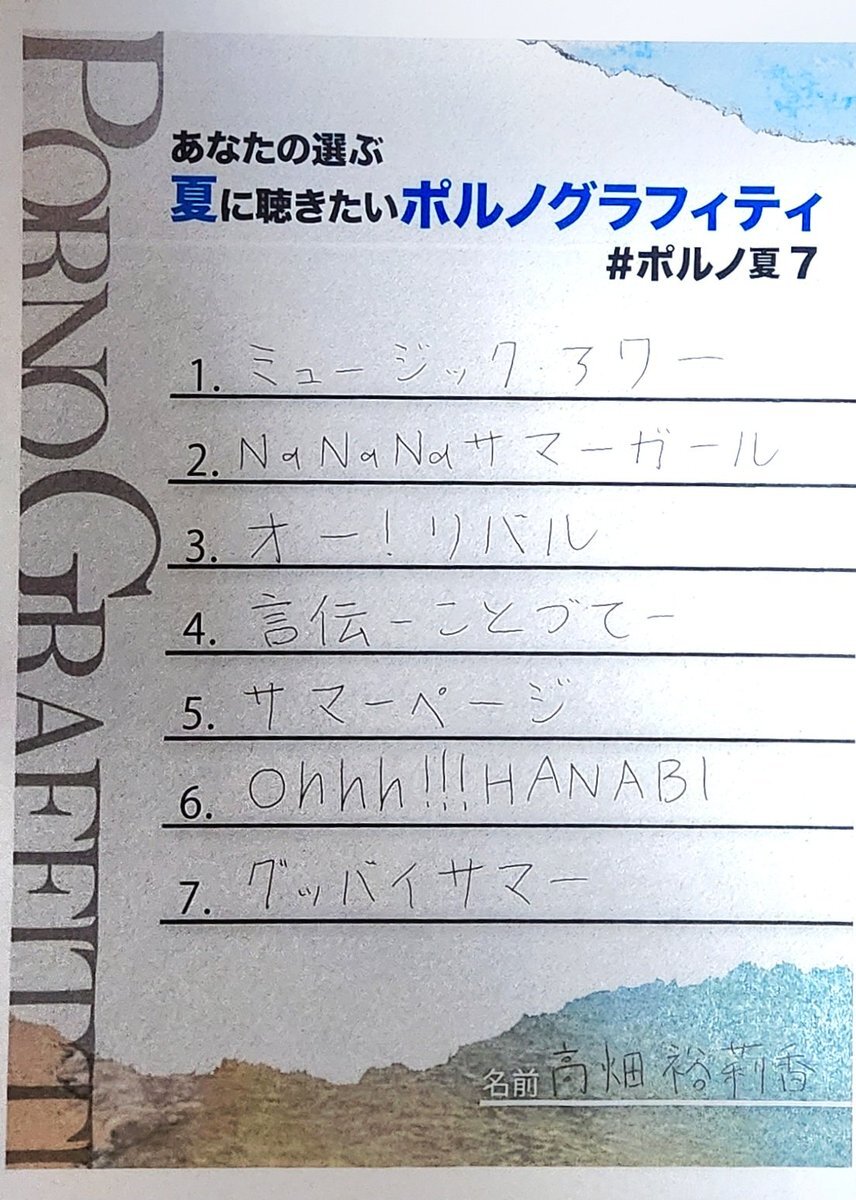 PORNOGRAFFITTI
あなたの選ぶ
夏に聴きたいポルノグラフィティ
#ポルノ夏7
1. ミュージック・アワー
2. NaNaNaサマーガール
3. オー!リバル
4. 言伝-ことづて-
5. サマーページ
6. Ohhh!!!HANABI
7. グッバイサマー
名前 高畑裕莉香